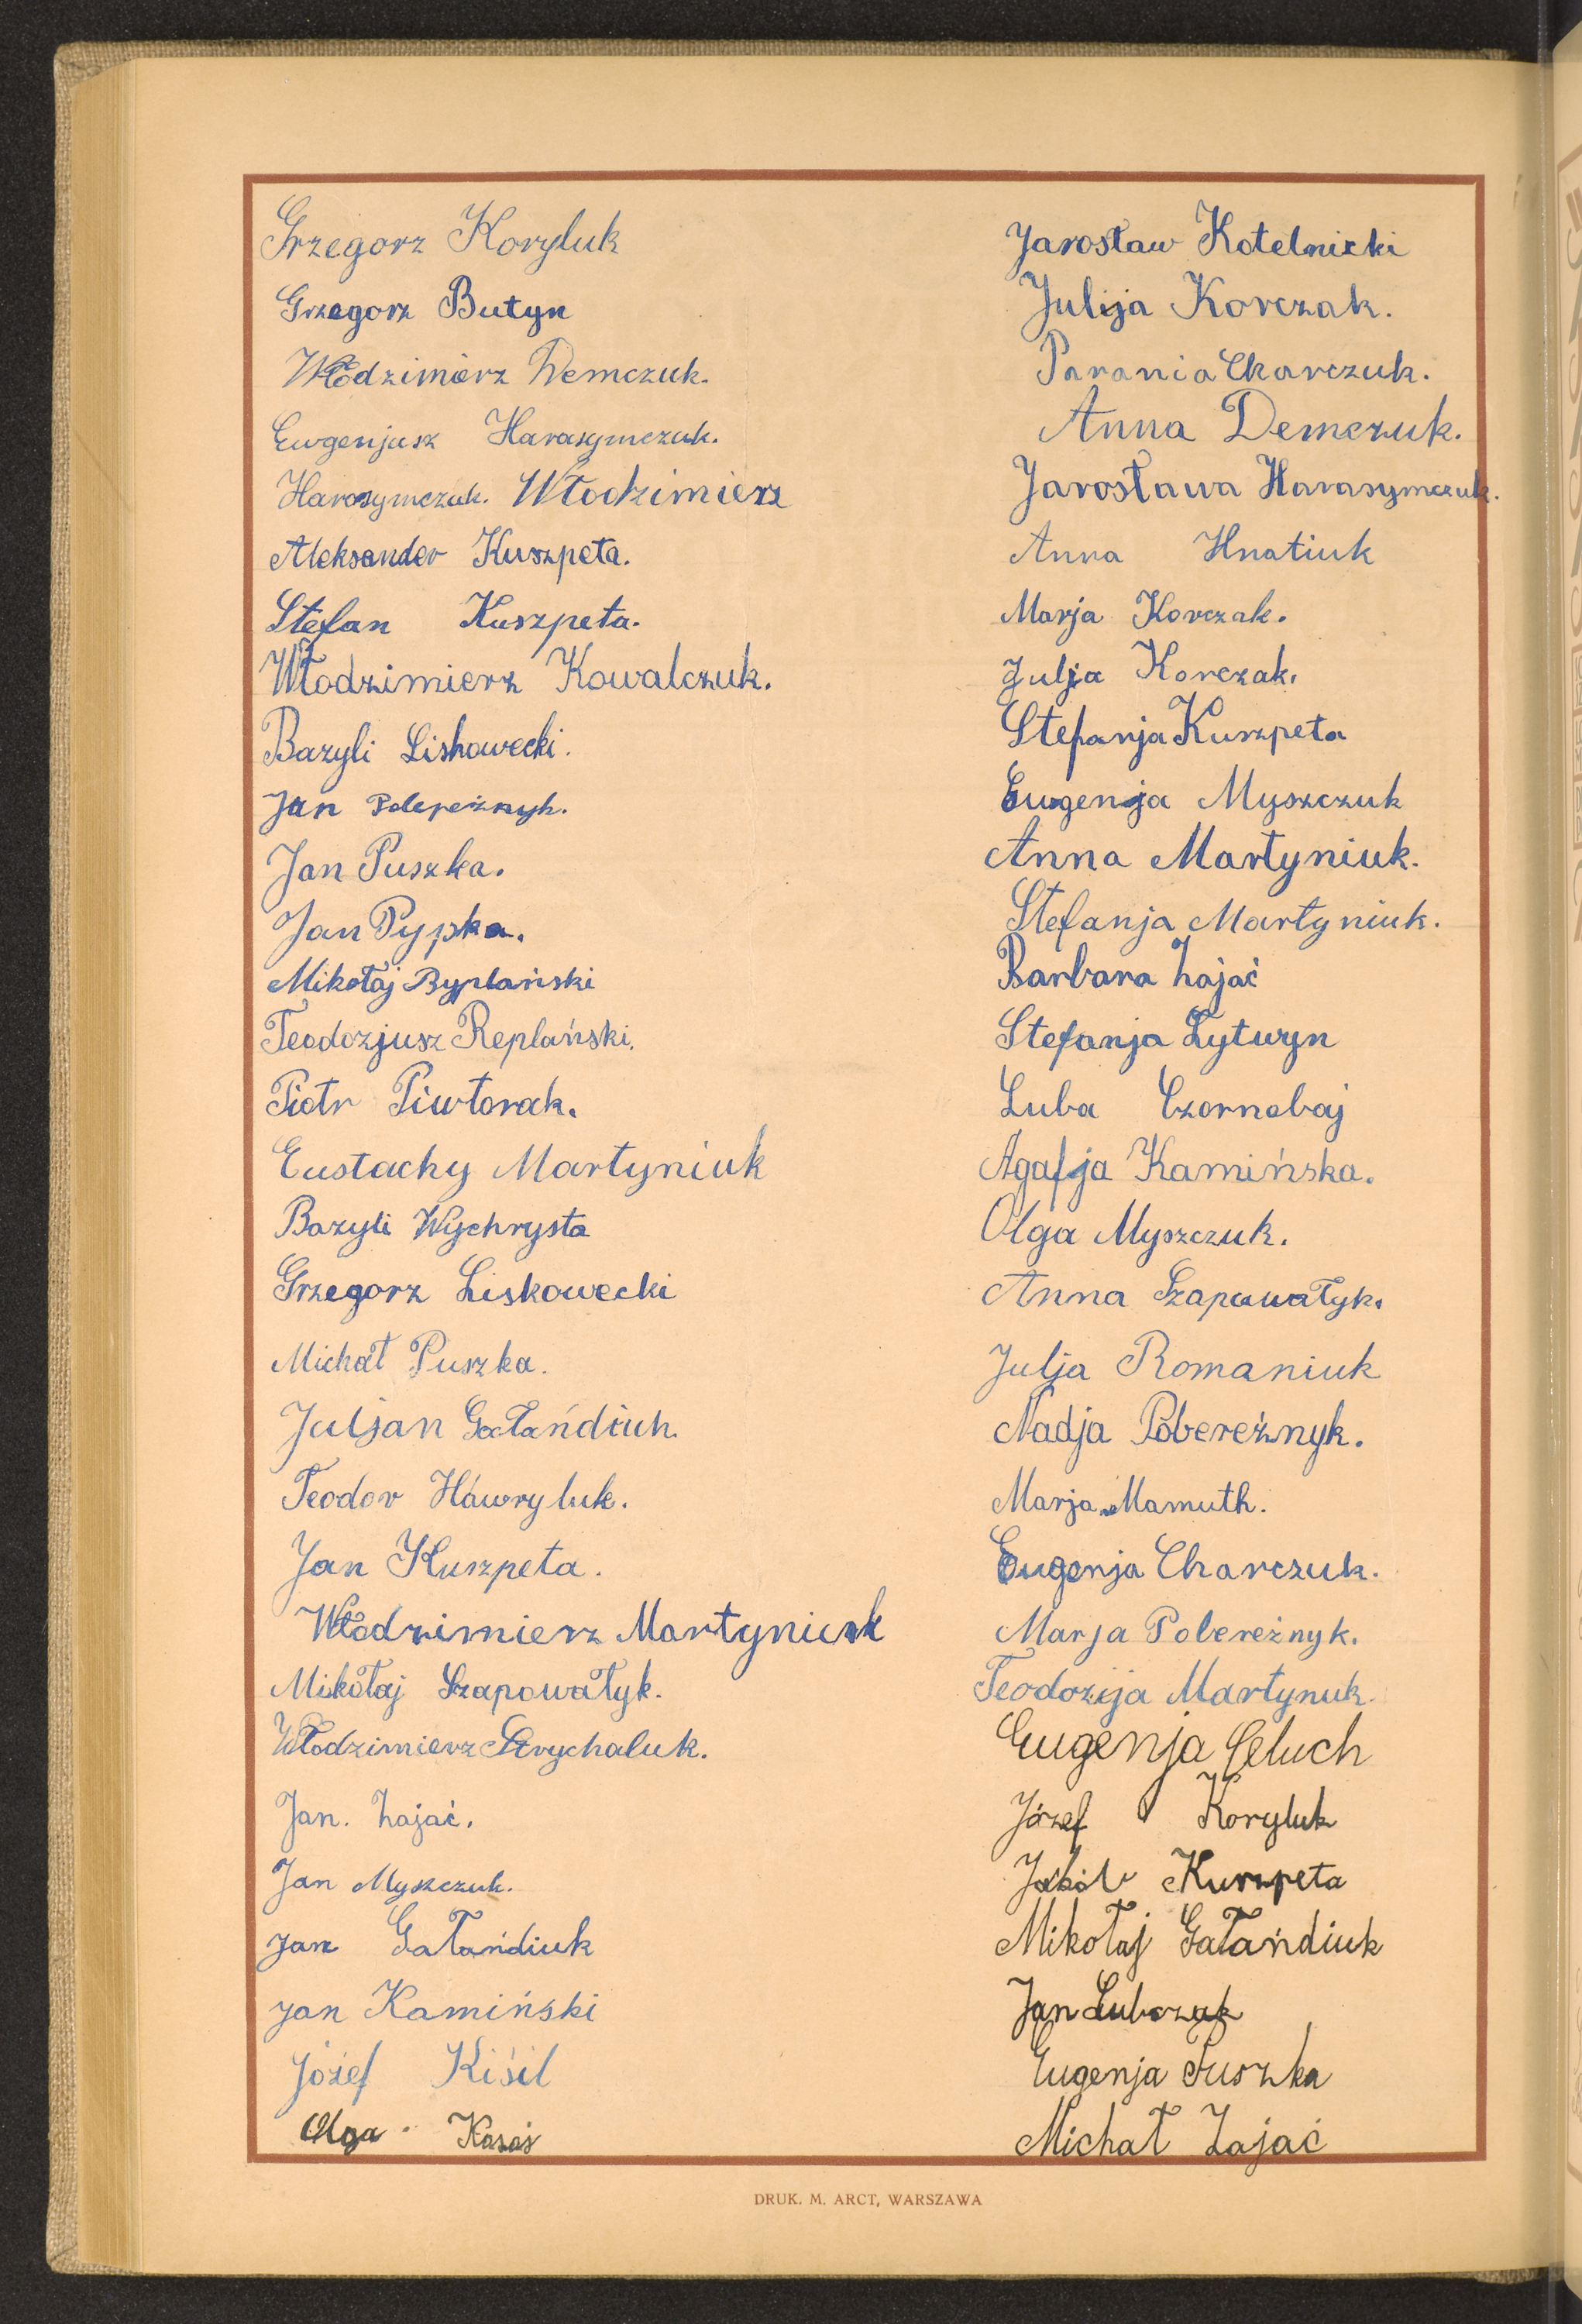 Grzegorz Koryluk
Grzegorz Butyn
Włodzimierz Demczuk.
Eugenjusz Harasymczuk.
Harasymczuk. Włodzimierz
Aleksander Kuszpeta.
Stefan Kuszpeta.
Włodzimierz Kowalczuk.
Bazyli Liskowecki.
Jan
Jan Puszka.
Jan Pypka.
Mikołaj Ryplański
Teodozjusz Replański.
Piotr Piwtorak.
Eustachy Martyniuk
Bazyli Wychrysta
Grzegorz Liskowecki
Michał Puszka.
Juljan Gałańdiuk.
Teodor Hawryluk.
Jan Kuszpeta.
Włodzimierz Martyniuk
Mikołaj Szapowałyk.
Włodzimierz Strychaluk.
Jan. Zając.
Jan Myszczuk.
Jan Gałańdiuk
Jan Kamiński
Józef Kiśil
Olga
Jarosław Kotelnicki
Julija Korczak.
Parania Charczuk.
Anna Demczuk.
Jarosława Harasymczuk.
Anna Hnatiuk
Marja Korczak.
Julja Korczak.
Stefanja Kuszpeta
Eugenja Myszczuk
Anna Martyniuk.
Stefanja Martyniuk.
Barbara Zajać
Stefanja Lytwyn
Luba Czornobaj
Agafja Kamińska.
Olga Myszczuk.
Anna Szapowałyk.
Julja Romaniuk
Nadja Pobereżnyk.
Marja Mamuth.
Eugenja Charczuk.
Marja Pobereżnyk.
Teodozija Martynuk.
Eugenja Celuch
Józef Koryluk
Jakób Kuszpeta
Mikołaj Gałańdiuk
Jan Lubczak
Eugenja Puszka
Michał Zajać
DRUK. M. ARCT, WARSZAWA